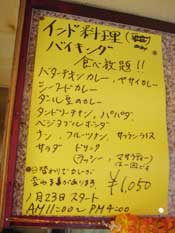 インド料理(
バイキング
食べ放題!!
バターチキンカレー、ヤサイカレー
シーフードカレー
ダール豆のカレー
タンドリーチキン、パパダ
ベジタブル
ナン、フルーツナン、サフランライス
サラダ ドリンク
※日替わりでカレーが
変わる事があります
¥1,050
1月23日スタート
AM11:00〜PM4:00